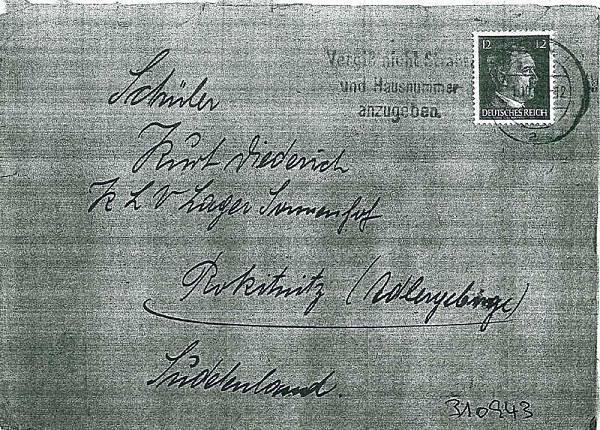 Vergiß nicht Straße
und Hausnummer
anzugeben.
12 12
DEUTSCHES REICH
12
Schüler
Kurt Diederich
K L V Lager Sonnenhof
Rokitnitz (Adlergebirge)
Sudetenland.
310843